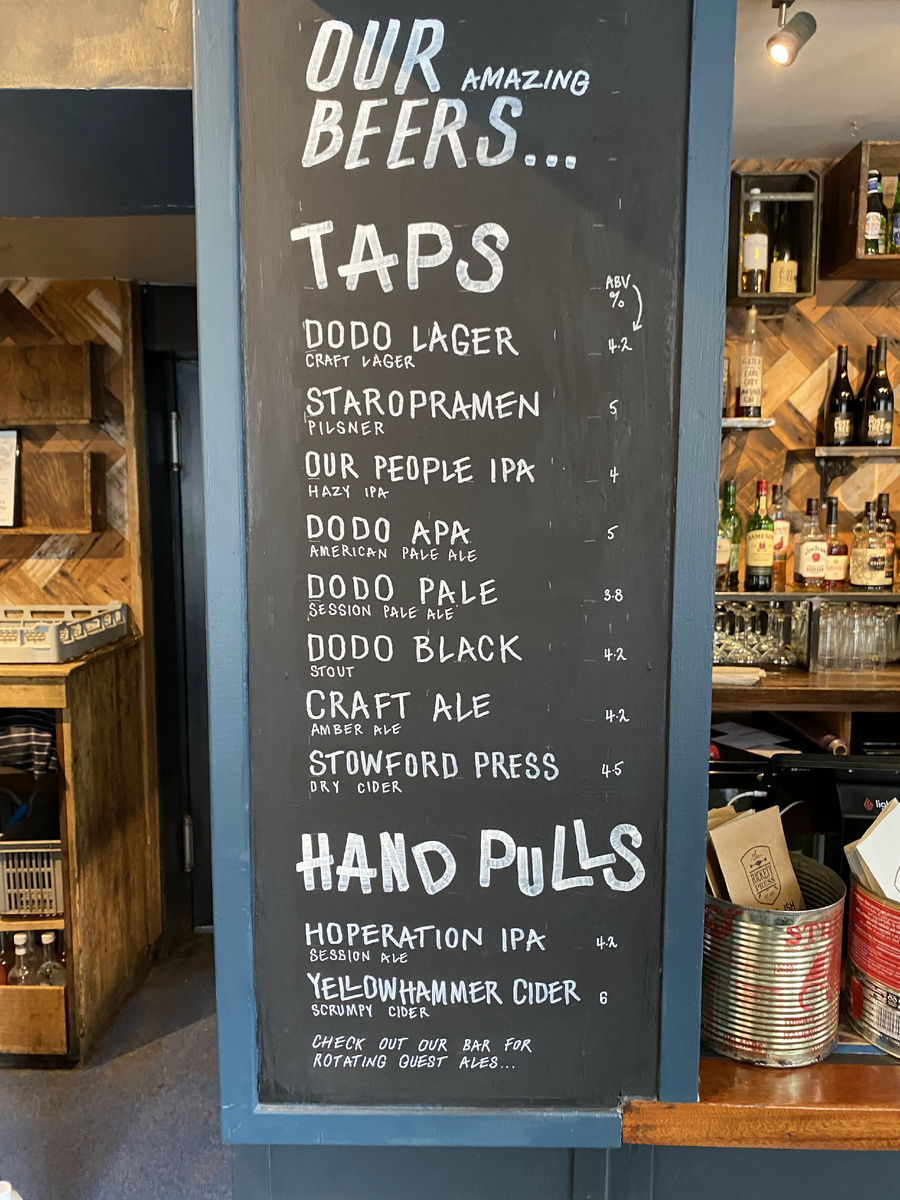 OUR AMAZING
BEERS...
TAPS
ABV
%
DODO LAGER 4.2
CRAFT LAGER
STAROPRAMEN 5
PILSNER
OUR PEOPLE IPA 4
HAZY IPA
DODO APA 5
AMERICAN PALE ALE
DODO PALE 3.8
SESSION PALE ALE
DODO BLACK 4.2
STOUT
CRAFT ALE 4.2
AMBER ALE
STOWFORD PRESS 4.5
DRY CIDER
HAND PULLS
HOPERATION IPA 4.2
SESSION ALE
YELLOWHAMMER CIDER 6
SCRUMPY CIDER
CHECK OUT OUR BAR FOR
ROTATING GUEST ALES...
JAMESON
PRESS